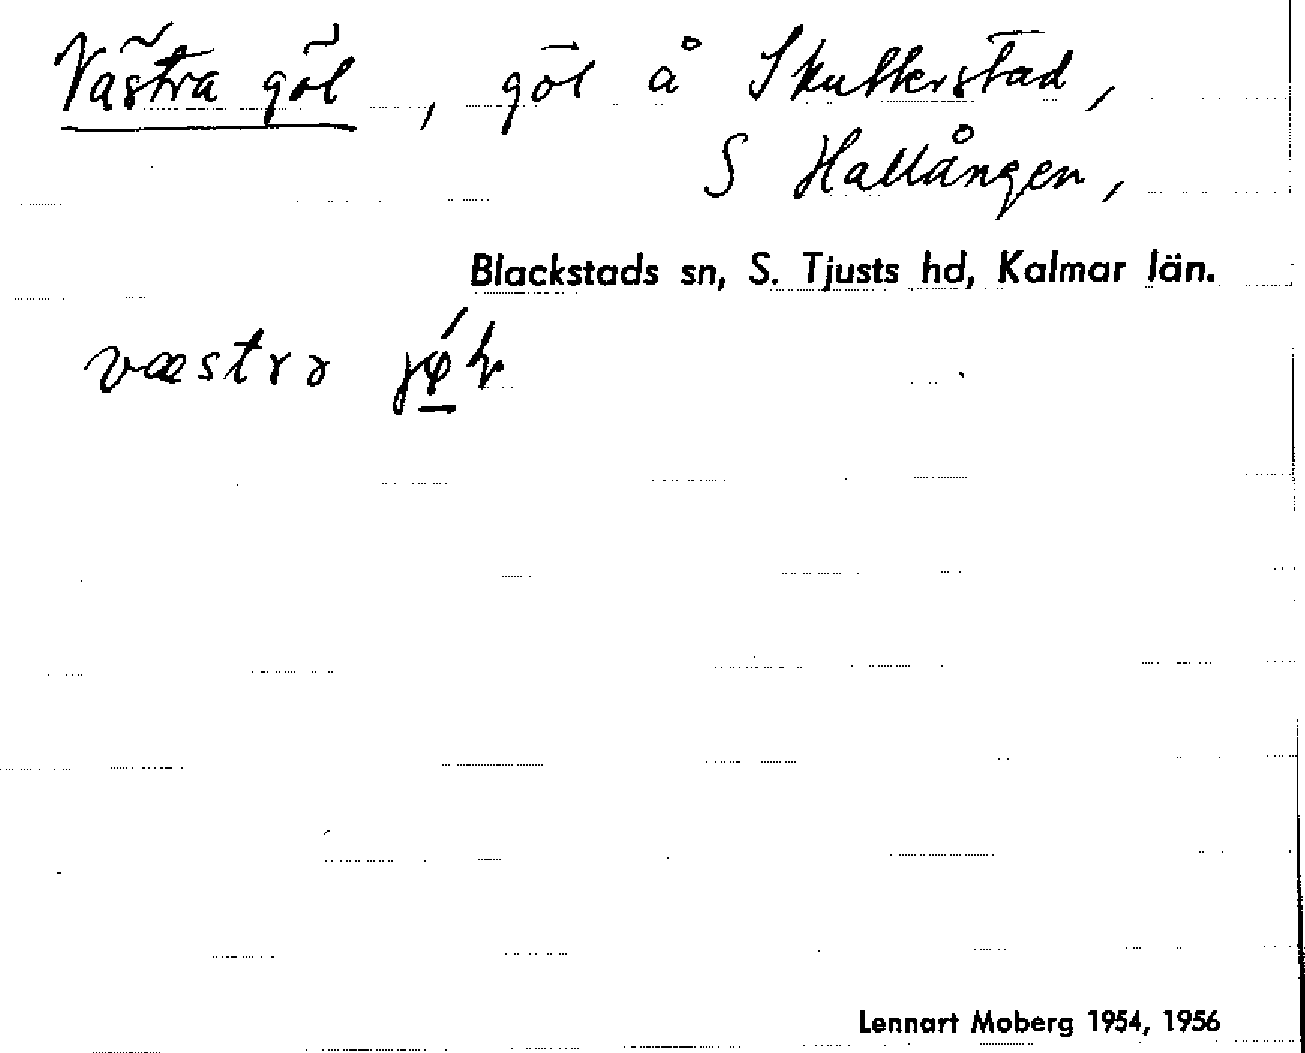 Västra göl, göl å Skutterstad,
S Hallången,
Blackstads sn, S. Tjusts hd, Kalmar län.
væstrə
Lennart Moberg 1954, 1956